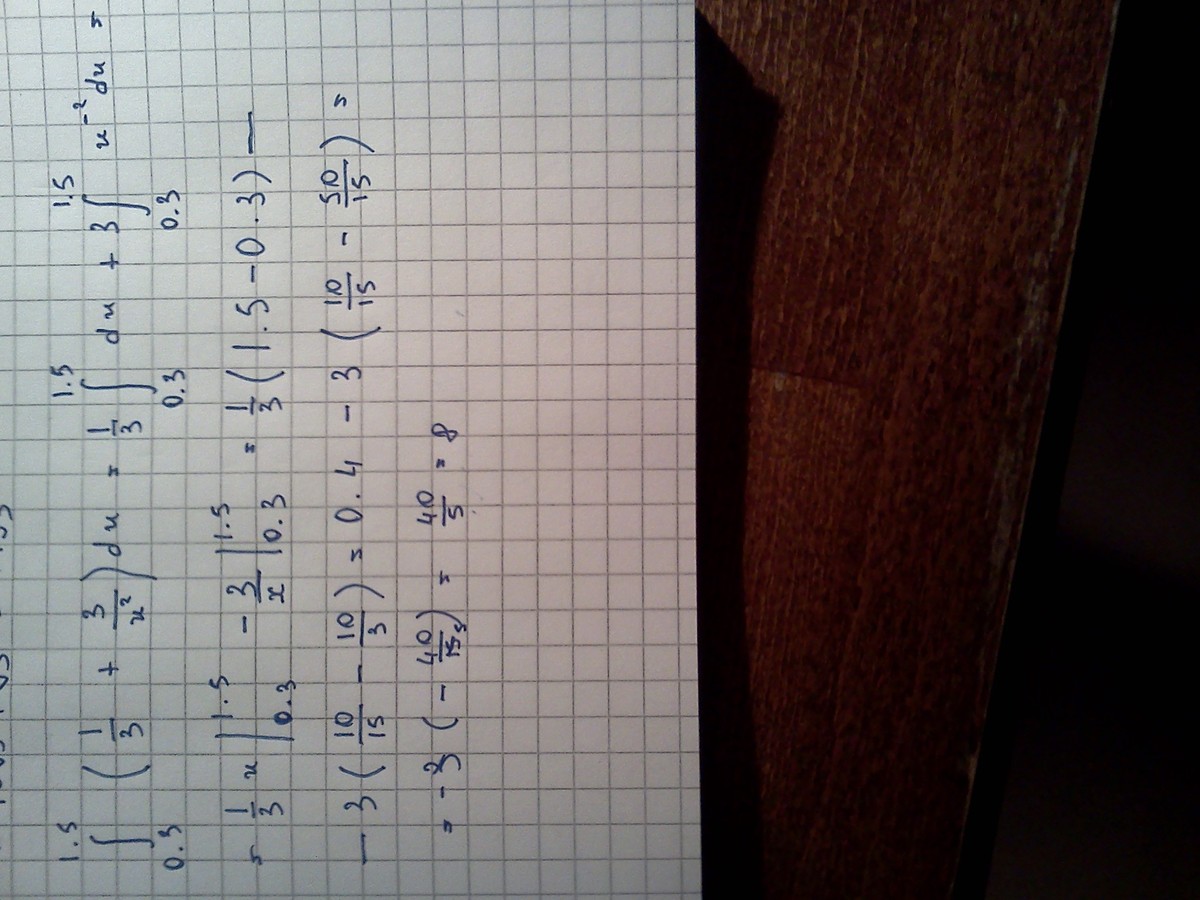 ∫_{0.3}^{1.5} (1/3 + 3/x²) dx = 1/3 ∫_{0.3}^{1.5} dx + 3 ∫_{0.3}^{1.5} x⁻² dx =
= 1/3 x |_{0.3}^{1.5} - 3/x |_{0.3}^{1.5} = = 1/3 (1.5 - 0.3) —
— 3 (10/15 - 10/3) = 0.4 - 3 (10/15 - 50/15) =
= -3 (- 40/15 5) = 40/5 = 8